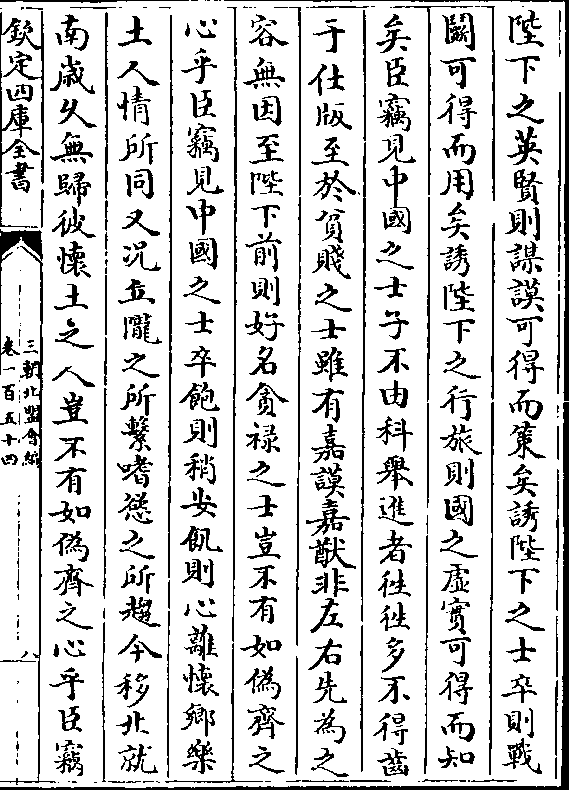 陛下之英賢則謀謨可得而策矣誘陛下之士卒則戰
鬭可得而用矣誘陛下之行旅則國之虛實可得而知
矣臣竊見中國之士子不由科舉進者徃徃多不得齒
于仕版至於貧賤之士雖有嘉謨嘉猷非左右先為之
容無因至陛下前則好名貪禄之士豈不有如偽齊之
心乎臣竊見中國之士卒飽則稍安飢則心離懷鄉樂
土人情所同又况丘隴之所繫嗜慾之所趨今移北就
南歲久無歸彼懷土之人豈不有如偽齊之心乎臣竊
欽定四庫全書
三朝北盟會編
卷一百五十四
八